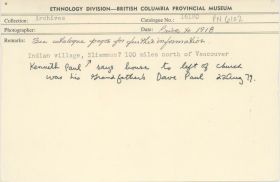 ETHNOLOGY DIVISION—BRITISH COLUMBIA PROVINCIAL MUSEUM
Collection: Archives Catalogue No.: PN 6102
Photographer: Date: 1918
Remarks: See catalogue pages for further information
Indian village, Sliammon? 100 miles north of Vancouver
Kenneth Paul says house to left of church
was his Grandfather's Dave Paul 22 Aug 79.